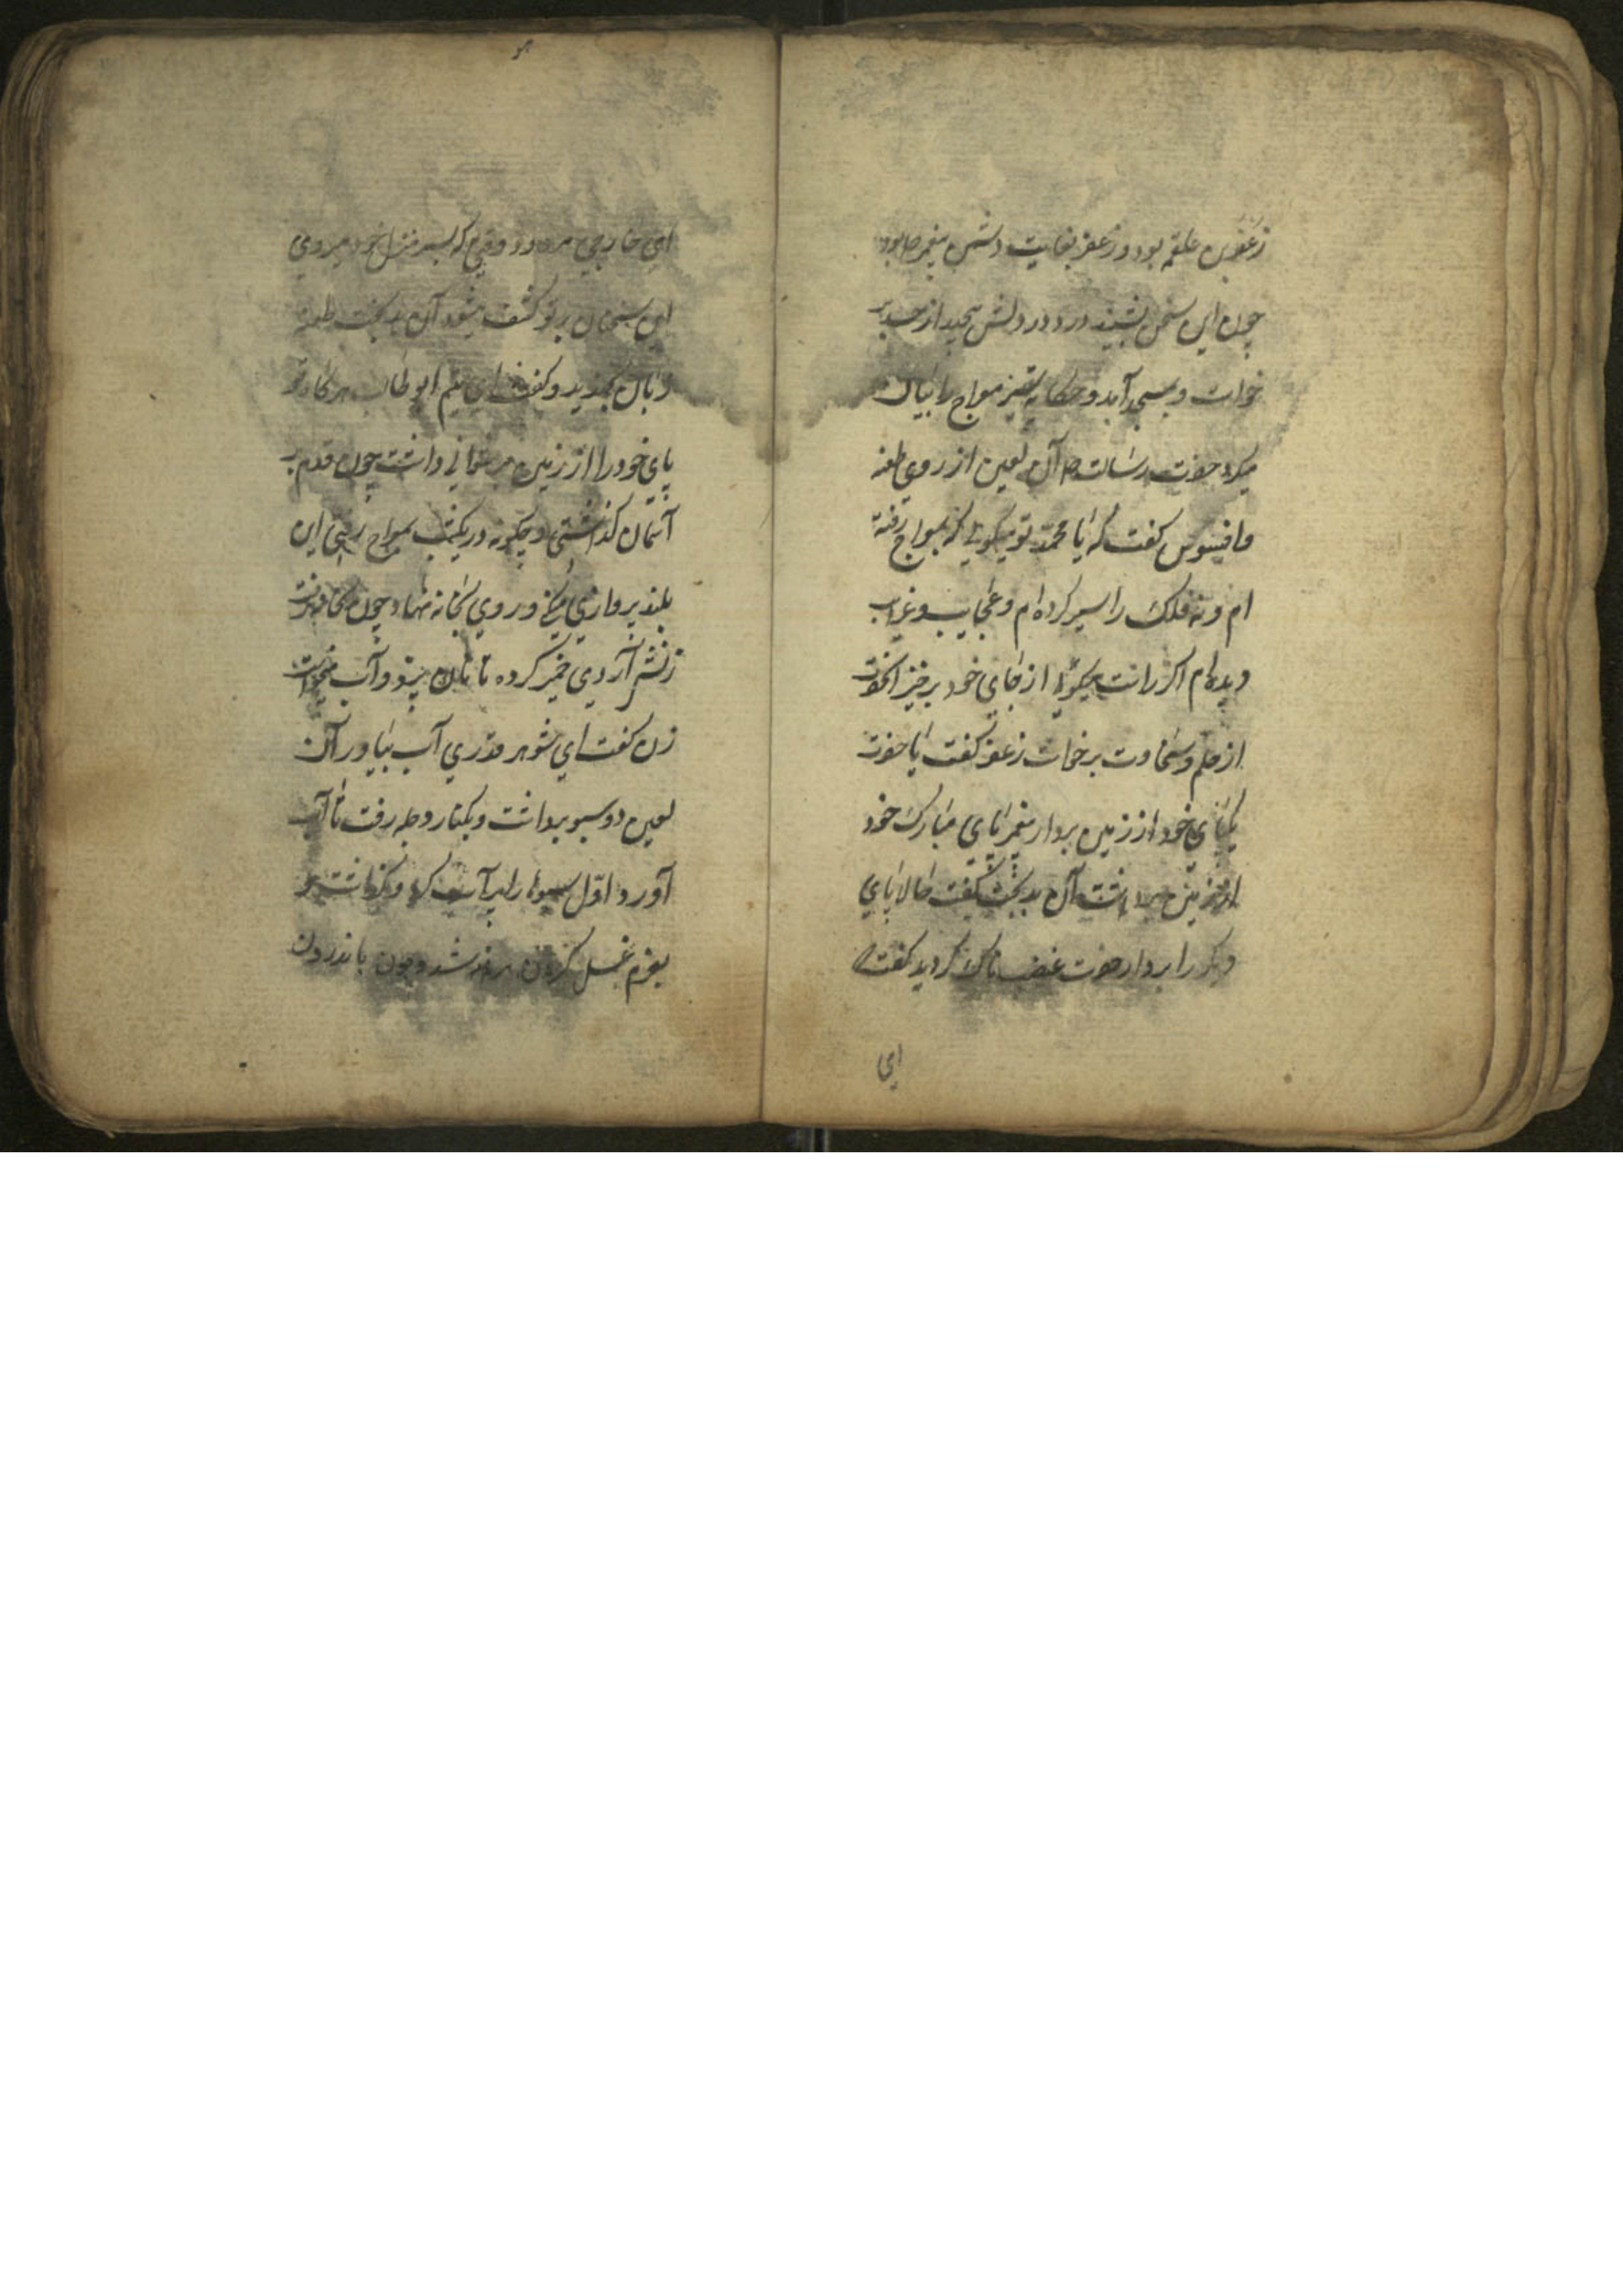 زعفر بن علقمه بود و زعفر بغایت دشمن پیغمبر ص بود
چون این سخن بشنید درد در دلش پیچید از حسد بر
خواست و بمسجد آمد و حکایة معراج را بیان
میکرد حضرت رسالت ص آن لعین از روی طعنه
و افسوس کفت که یا محمد تو میکویی که بمعراج رفته
ام و نه فلک را سیر کرده ام و عجایب و غرایب
دیده ام اکر راست میکویی از جای خود برخیز آنحضرت
از حلم و سخاوت برخاست زعفر کفت یا حضرت
یکپای خود از زمین بردار پیغمبر پای مبارک خود
از زمین برداشت آن بدبخت کفت حالا پای
دیکر را بردار حضرت غضبناک کردید کفت
ای
ای خارجی مردود وقتی که بسر منزل خود میروی
این سخنان بر تو کشف میشود آن بدبخت طعنه
زبان کفت ای یتیم ابو طالب هر کاه تو
پای خود را از زمین بر نمی توانی داشت چون قدم بر
آسمان کذاشتی و چکونه در یکشب بمعراج رفتی این
بلند پروازی میکنی و روی بخانه نهاد چون بخانه رفت
زنش آردی خمیر کرده تا نان پزد و آب میخواست
زن کفت ای شوهر قدری آب بیاور آن
لعین دو سبو برداشت و بکنار دجله رفت تا آب
آورد اول سبوها را پر آب کرد و کذاشت و
بعزم غسل کردن برهنه شد و چون باندرون